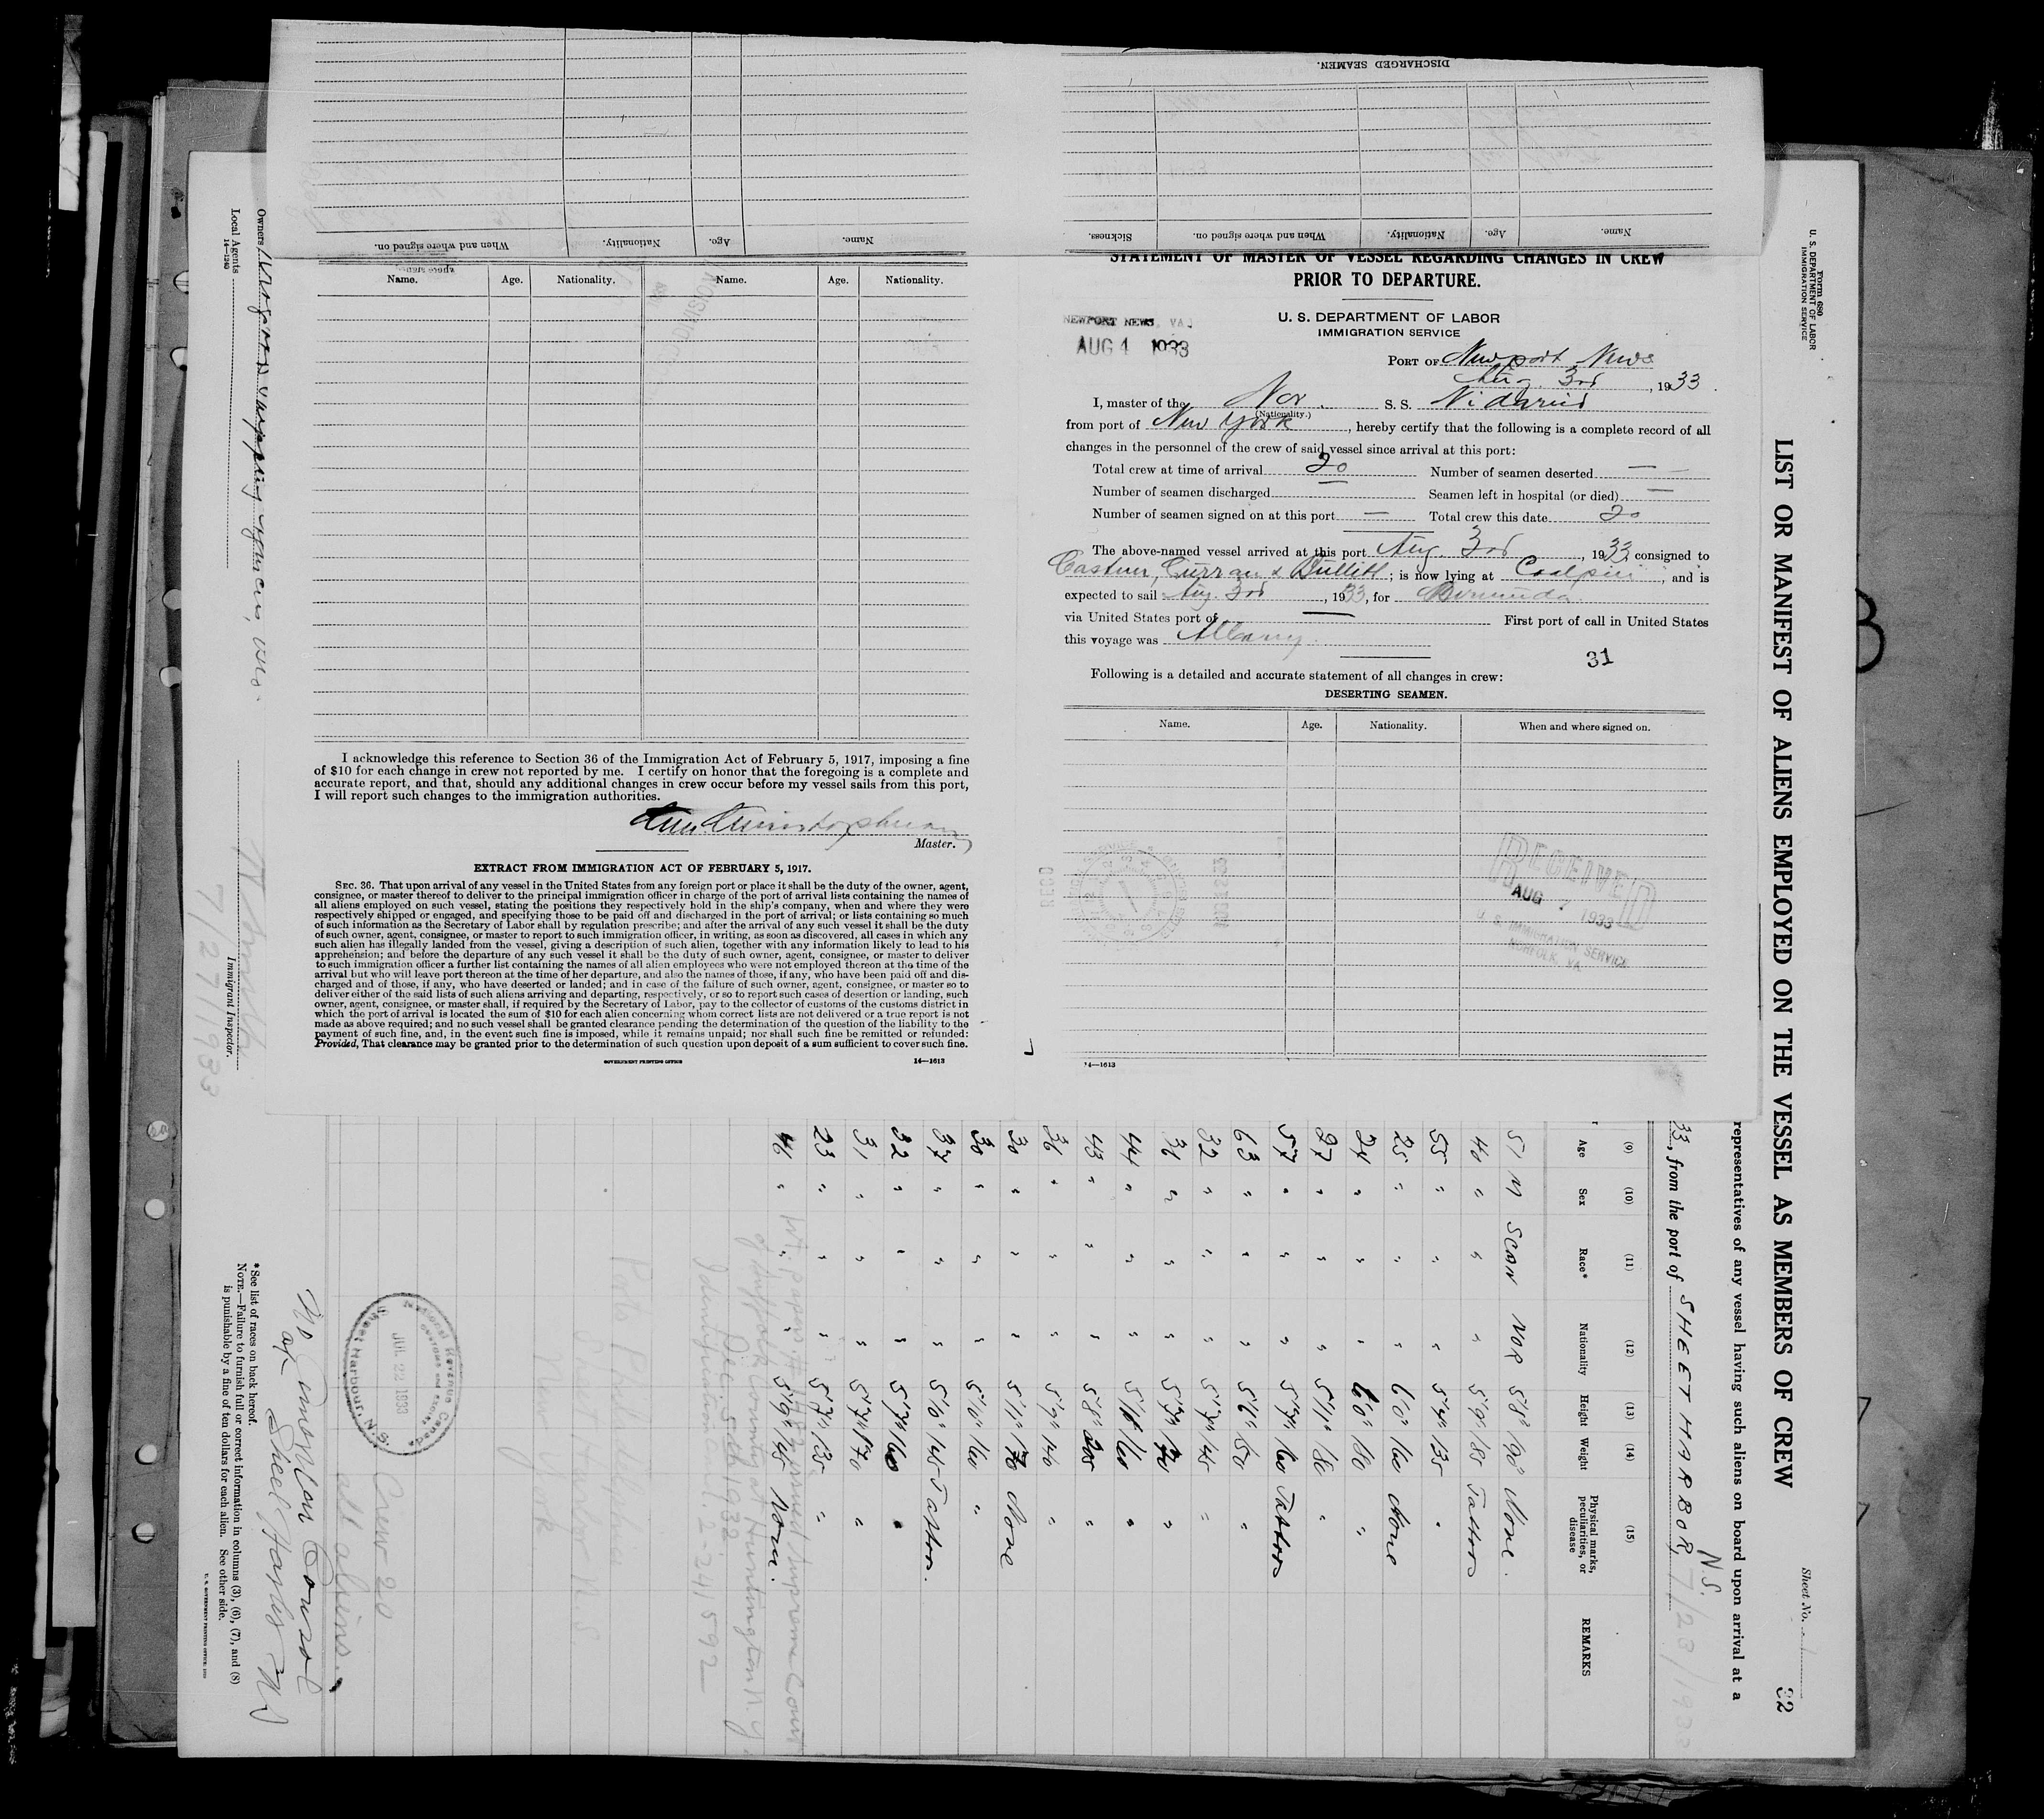 DISCHARGED SEAMEN.
Name.
Age.
Nationality.
When and where signed on.
Sickness.
Name.
Age.
Nationality.
When and where signed on.
Name. Age. Nationality. Name. Age. Nationality.
I acknowledge this reference to Section 36 of the Immigration Act of February 5, 1917, imposing a fine
of $10 for each change in crew not reported by me. I certify on honor that the foregoing is a complete and
accurate report, and that, should any additional changes in crew occur before my vessel sails from this port,
I will report such changes to the immigration authorities.
Master.
EXTRACT FROM IMMIGRATION ACT OF FEBRUARY 5, 1917.
SEC. 36. That upon arrival of any vessel in the United States from any foreign port or place it shall be the duty of the owner, agent,
consignee, or master thereof to deliver to the principal immigration officer in charge of the port of arrival lists containing the names of
all aliens employed on such vessel, stating the positions they respectively hold in the ship's company, when and where they were
respectively shipped or engaged, and specifying those to be paid off and discharged in the port of arrival; or lists containing so much
of such information as the Secretary of Labor shall by regulation prescribe; and after the arrival of any such vessel it shall be the duty
of such owner, agent, consignee, or master to report to such immigration officer, in writing, as soon as discovered, all cases in which any
such alien has illegally landed from the vessel, giving a description of such alien, together with any information likely to lead to his
apprehension; and before the departure of any such vessel it shall be the duty of such owner, agent, consignee, or master to deliver
to such immigration officer a further list containing the names of all alien employees who were not employed thereon at the time of the
arrival but who will leave port thereon at the time of her departure, and also the names of those, if any, who have been paid off and dis-
charged and of those, if any, who have deserted or landed; and in case of the failure of such owner, agent, consignee, or master so to
deliver either of the said lists of such aliens arriving and departing, respectively, or so to report such cases of desertion or landing, such
owner, agent, consignee, or master shall, if required by the Secretary of Labor, pay to the collector of customs of the customs district in
which the port of arrival is located the sum of $10 for each alien concerning whom correct lists are not delivered or a true report is not
made as above required; and no such vessel shall be granted clearance pending the determination of the question of the liability to the
payment of such fine, and, in the event such fine is imposed, while it remains unpaid; nor shall such fine be remitted or refunded:
Provided, That clearance may be granted prior to the determination of such question upon deposit of a sum sufficient to cover such fine.
GOVERNMENT PRINTING OFFICE 14—1613
STATEMENT OF MASTER OF VESSEL REGARDING CHANGES IN CREW
PRIOR TO DEPARTURE.
U. S. DEPARTMENT OF LABOR
IMMIGRATION SERVICE
NEWPORT NEWS, VA.
AUG 4 1933
PORT OF Newport News
Aug 3rd, 1933.
I, master of the Nor. S. S.
(Nationality.)
from port of New York, hereby certify that the following is a complete record of all
changes in the personnel of the crew of said vessel since arrival at this port:
Total crew at time of arrival 20 Number of seamen deserted —
Number of seamen discharged — Seamen left in hospital (or died) —
Number of seamen signed on at this port — Total crew this date 20
The above-named vessel arrived at this port Aug. 3rd, 1933, consigned to
Castner, Curran & Bullitt; is now lying at Coalpier, and is
expected to sail Aug. 3rd, 1933, for Bermuda
via United States port of — First port of call in United States
this voyage was Albany.
31
Following is a detailed and accurate statement of all changes in crew:
DESERTING SEAMEN.
Name. Age. Nationality. When and where signed on.
RECEIVED
AUG 7 1933
U. S. IMMIGRATION SERVICE
NORFOLK, VA.
14—1613
Form 680
U. S. DEPARTMENT OF LABOR
IMMIGRATION SERVICE
Sheet No.
32
LIST OR MANIFEST OF ALIENS EMPLOYED ON THE VESSEL AS MEMBERS OF CREW
representatives of any vessel having such aliens on board upon arrival at a
33, from the port of SHEET HARBOR, N.S. 7/23/1933
(9) (10) (11) (12) (13) (14) (15)
Age Sex Race* Nationality Height Weight Physical marks, peculiarities, or disease REMARKS
51 M SCAN NOR 5'8" 190 None.
40 " " " 5'9" 185 Tattoo
55 " " " 5'4" 135 "
25 " " " 6'0" 160 None
24 " " " 6'0" 180 "
27 " " " 5'11" 180 "
57 " " " 5'7" 160 Tattoo
63 " " " 5'6" 150 "
32 " " " 5'7" 145 "
36 " " " "
44 " " " "
43 " " " 5'8" 205 "
36 " " " 5'9" 140 "
30 " " " 5'11" 170 None
30 " " " "
37 " " " 5'10" 145 Tattoo.
32 " " " 5'7" 160 "
31 " " " 5'7" 170 "
23 " " " 5'7" 135 "
46 " " " 5'9" 145 None.
Supreme Court
of Suffolk County at Huntington N.Y.
Dec. 5th 1932
New York
Crew 20
all aliens.
JUL 22 1933
Sheet Harbour, N.S.
No American Consul
at Sheet Harbor NS
*See list of races on back hereof.
NOTE.—Failure to furnish full or correct information in columns (3), (6), (7), and (8)
is punishable by a fine of ten dollars for each alien. See other side.
Owners
Local Agents
14—1240
Immigrant Inspector.
7/27/1933